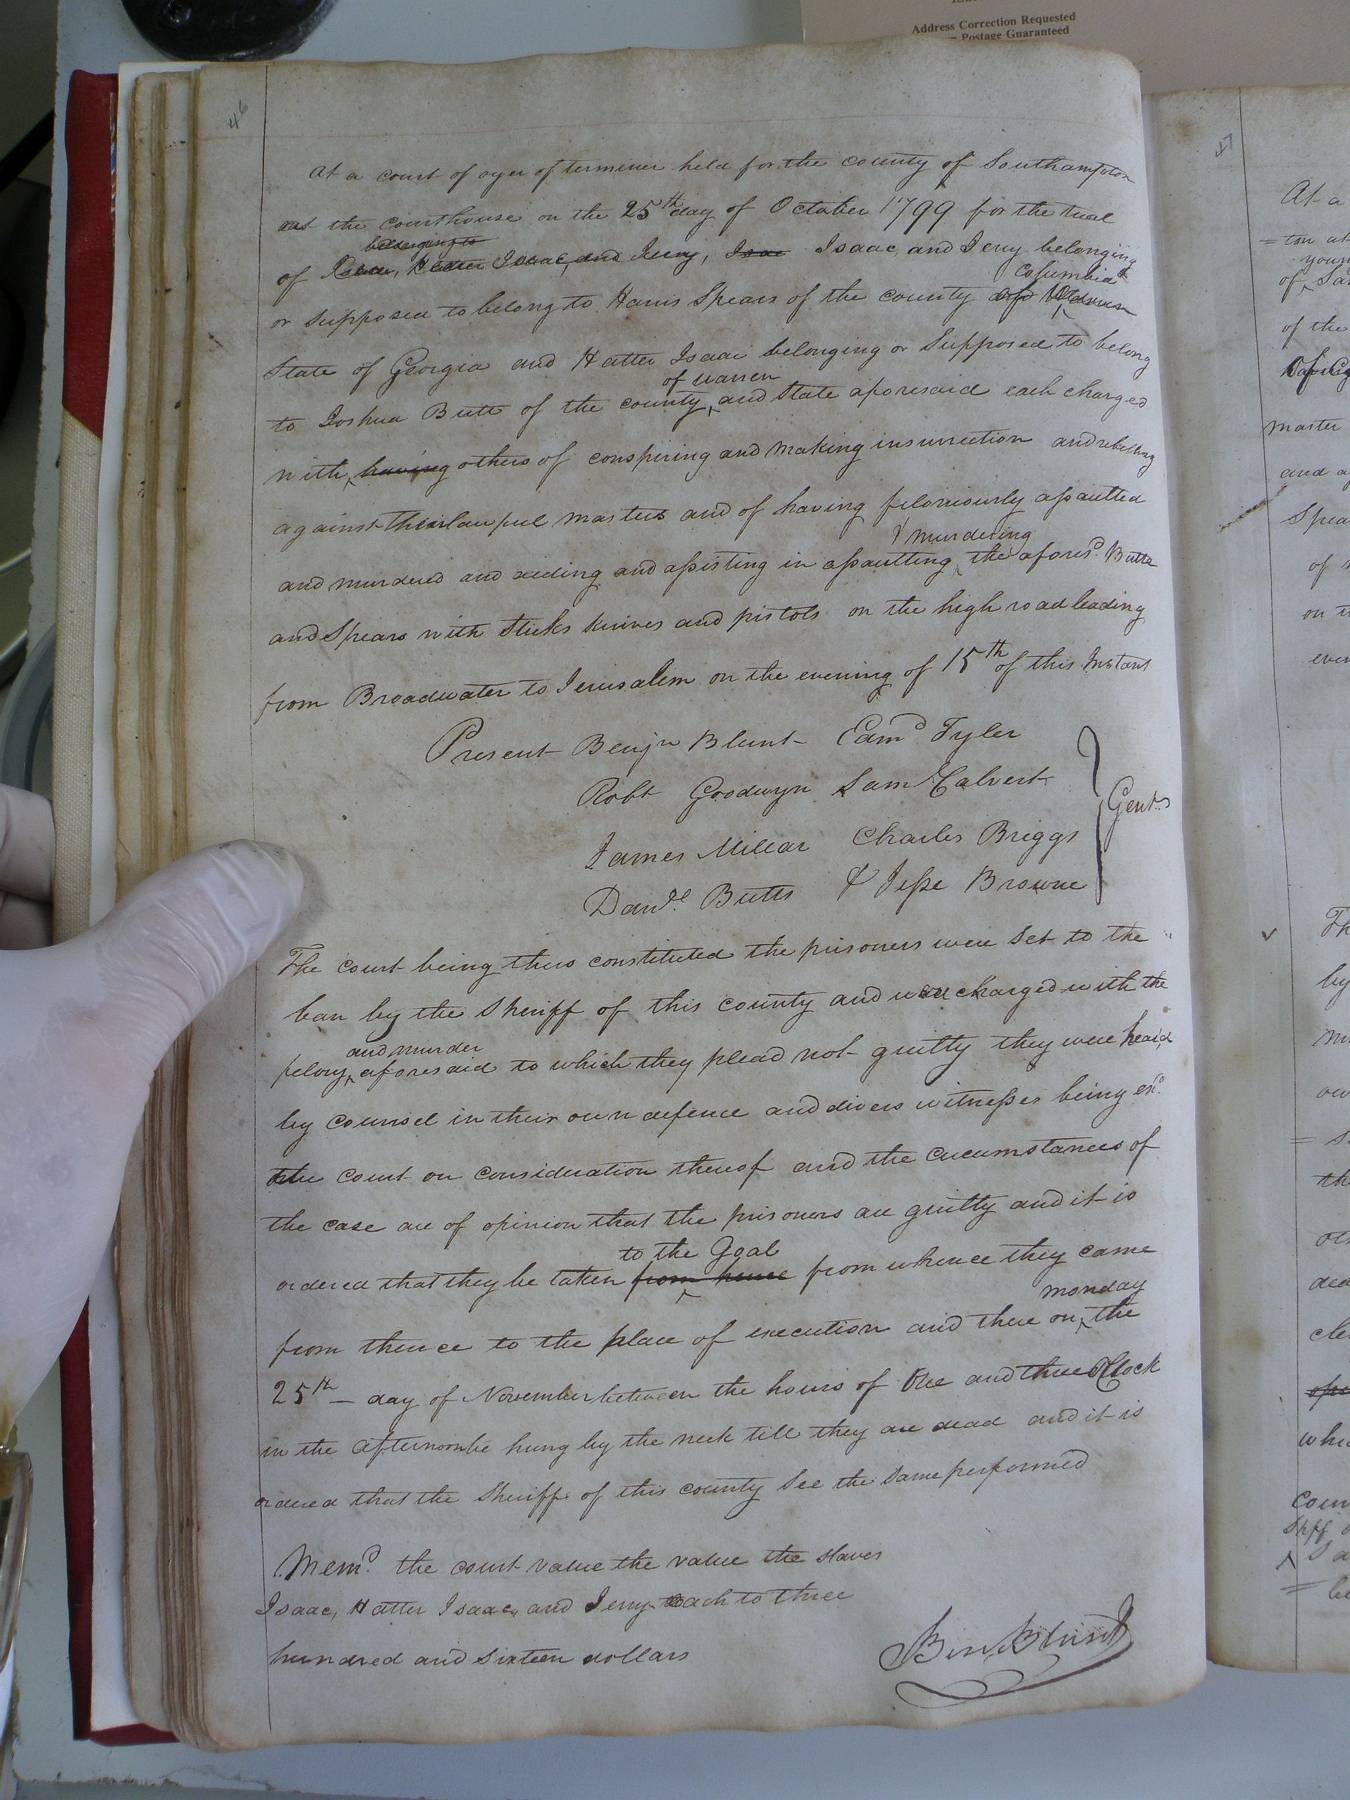 Address Correction Requested
Postage Guaranteed
46
At a court of oyer of terminer held for the county of Southampton
at the courthouse on the 25th day of October 1799 for the trial
belonging to
of Isaac, Hatter Isaac, and Jerry, Isaac Isaac, and Jerry belonging
Columbia &
or Supposed to belong to Harris Spears of the county of
State of Georgia and Hatter Isaac belonging or Supposed to belong
of warren
to Joshua Butts of the county and State aforesaid each charged
with having others of conspiring and making insurrection and rebelling
against their lawful masters and of having feloniously assaulted
& murdering
and murdered and aiding and assisting in assaulting the afores.d Butts
and Spears with Sticks knives and pistols on the high road leading
from Broadwater to Jerusalem on the evening of 15th of this Instant
Present Benjn Blunt Edmd Tyler
Robt Goodwyn Saml Calvert
Gent.s
James Millar Charles Briggs
Danl. Butts & Jesse Browne
The court being thus constituted the prisoners were Set to the
bar by the Sheriff of this county and were charged with the
and murder
felony aforesaid to which they plead not guilty they were heard
by counsel in their own defence and divers witnesses being exd.
the court on consideration thereof and the circumstances of
the case are of opinion that the prisoners are guilty and it is
to the Goal
ordered that they be taken from hence from whence they came
monday
from thence to the place of execution and there on the
25th day of November between the hours of One and three OClock
in the afternoon be hung by the neck till they are dead and it is
ordered that the Sheriff of this county See the Same performed
Memd. the court value the value the slaves
Isaac, Hatter Isaac, and Jerry each to three
hundred and Sixteen dollars
Ben. Blunt
47
At a
ton at
of
of the
master
and
of
on